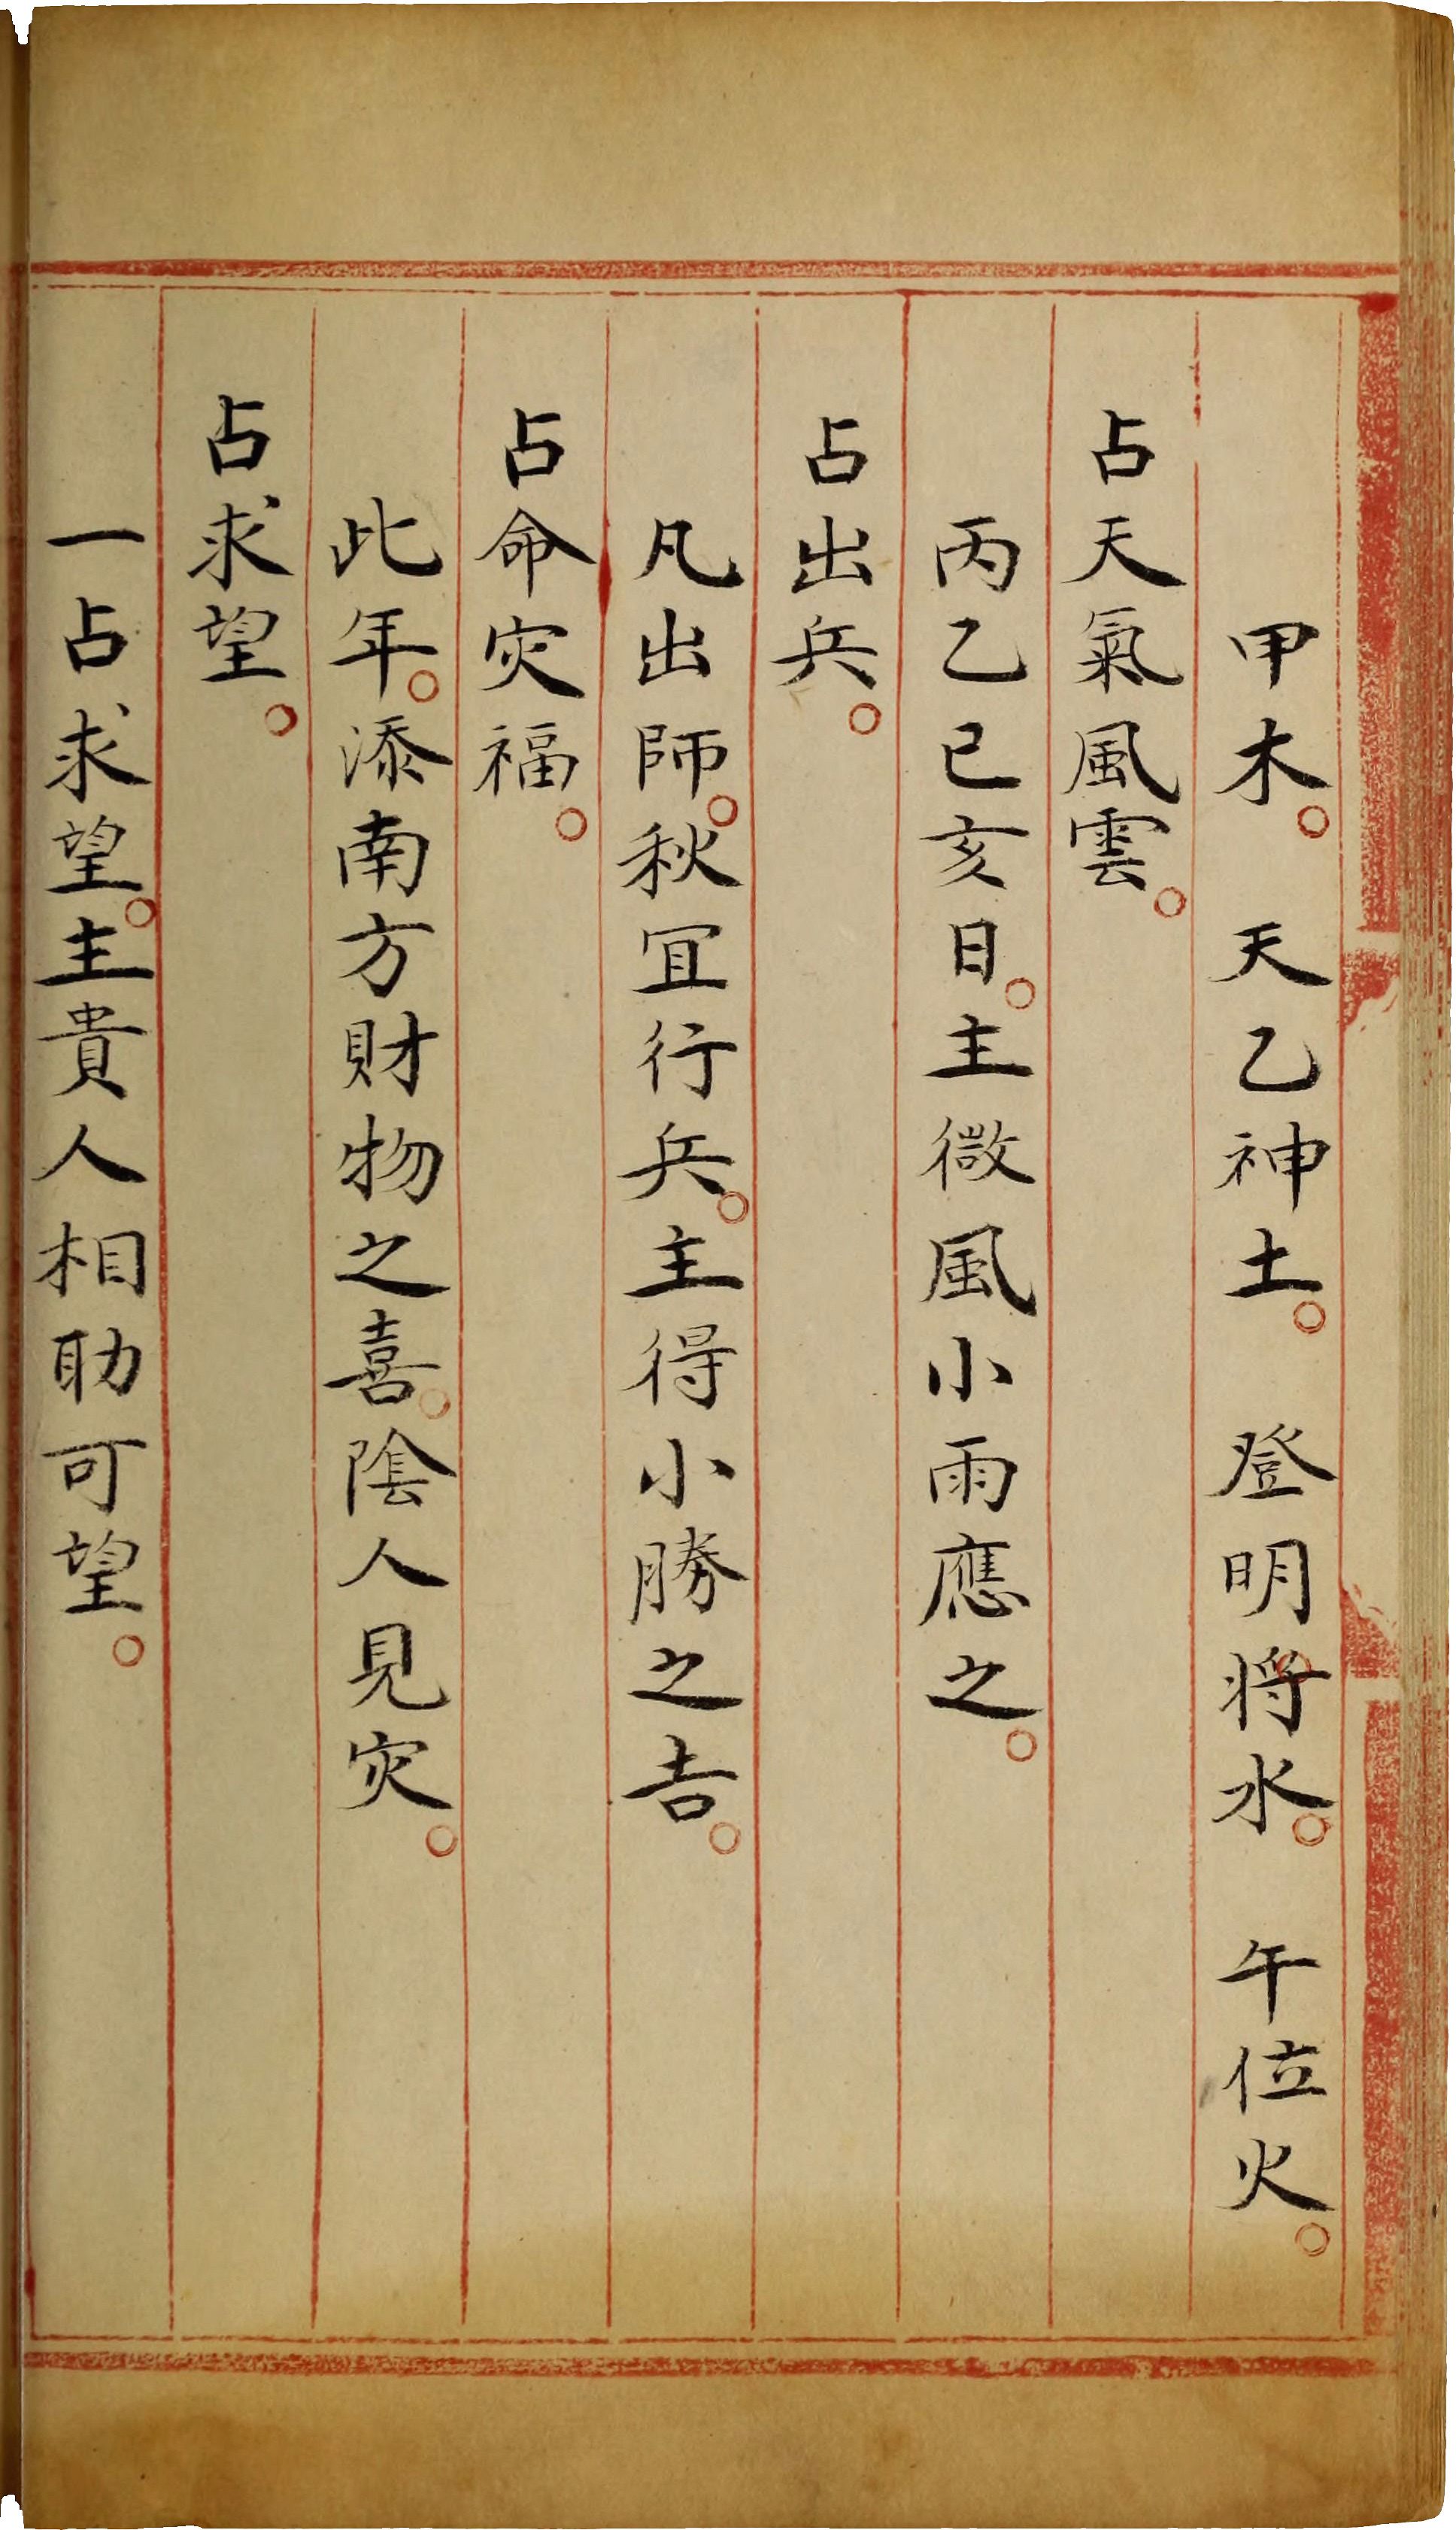 甲木。　天乙神土。　登明将水。　午位火。
占天氣風雲。
丙乙已亥日。主微風小雨應之。
占出兵。
凡出師。秋宜行兵。主得小勝之吉。
占命灾福。
此年。添南方財物之喜。陰人見灾。
占求望。
一占求望。主貴人相助可望。